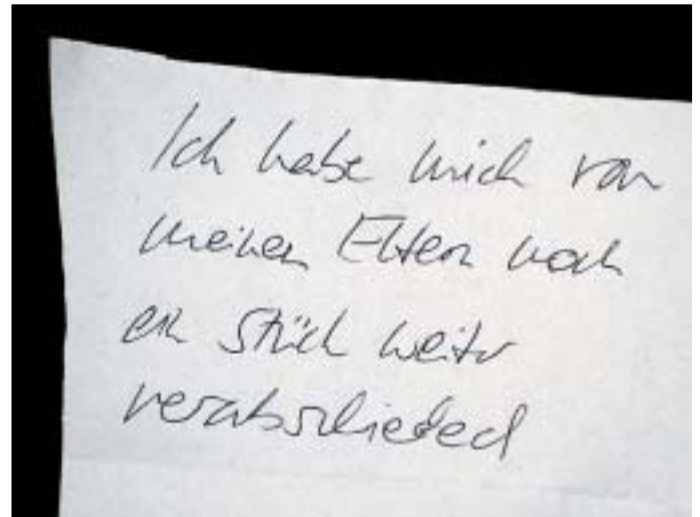 Ich habe mich von
meinen Eltern noch
ein Stück weiter
verabschieded